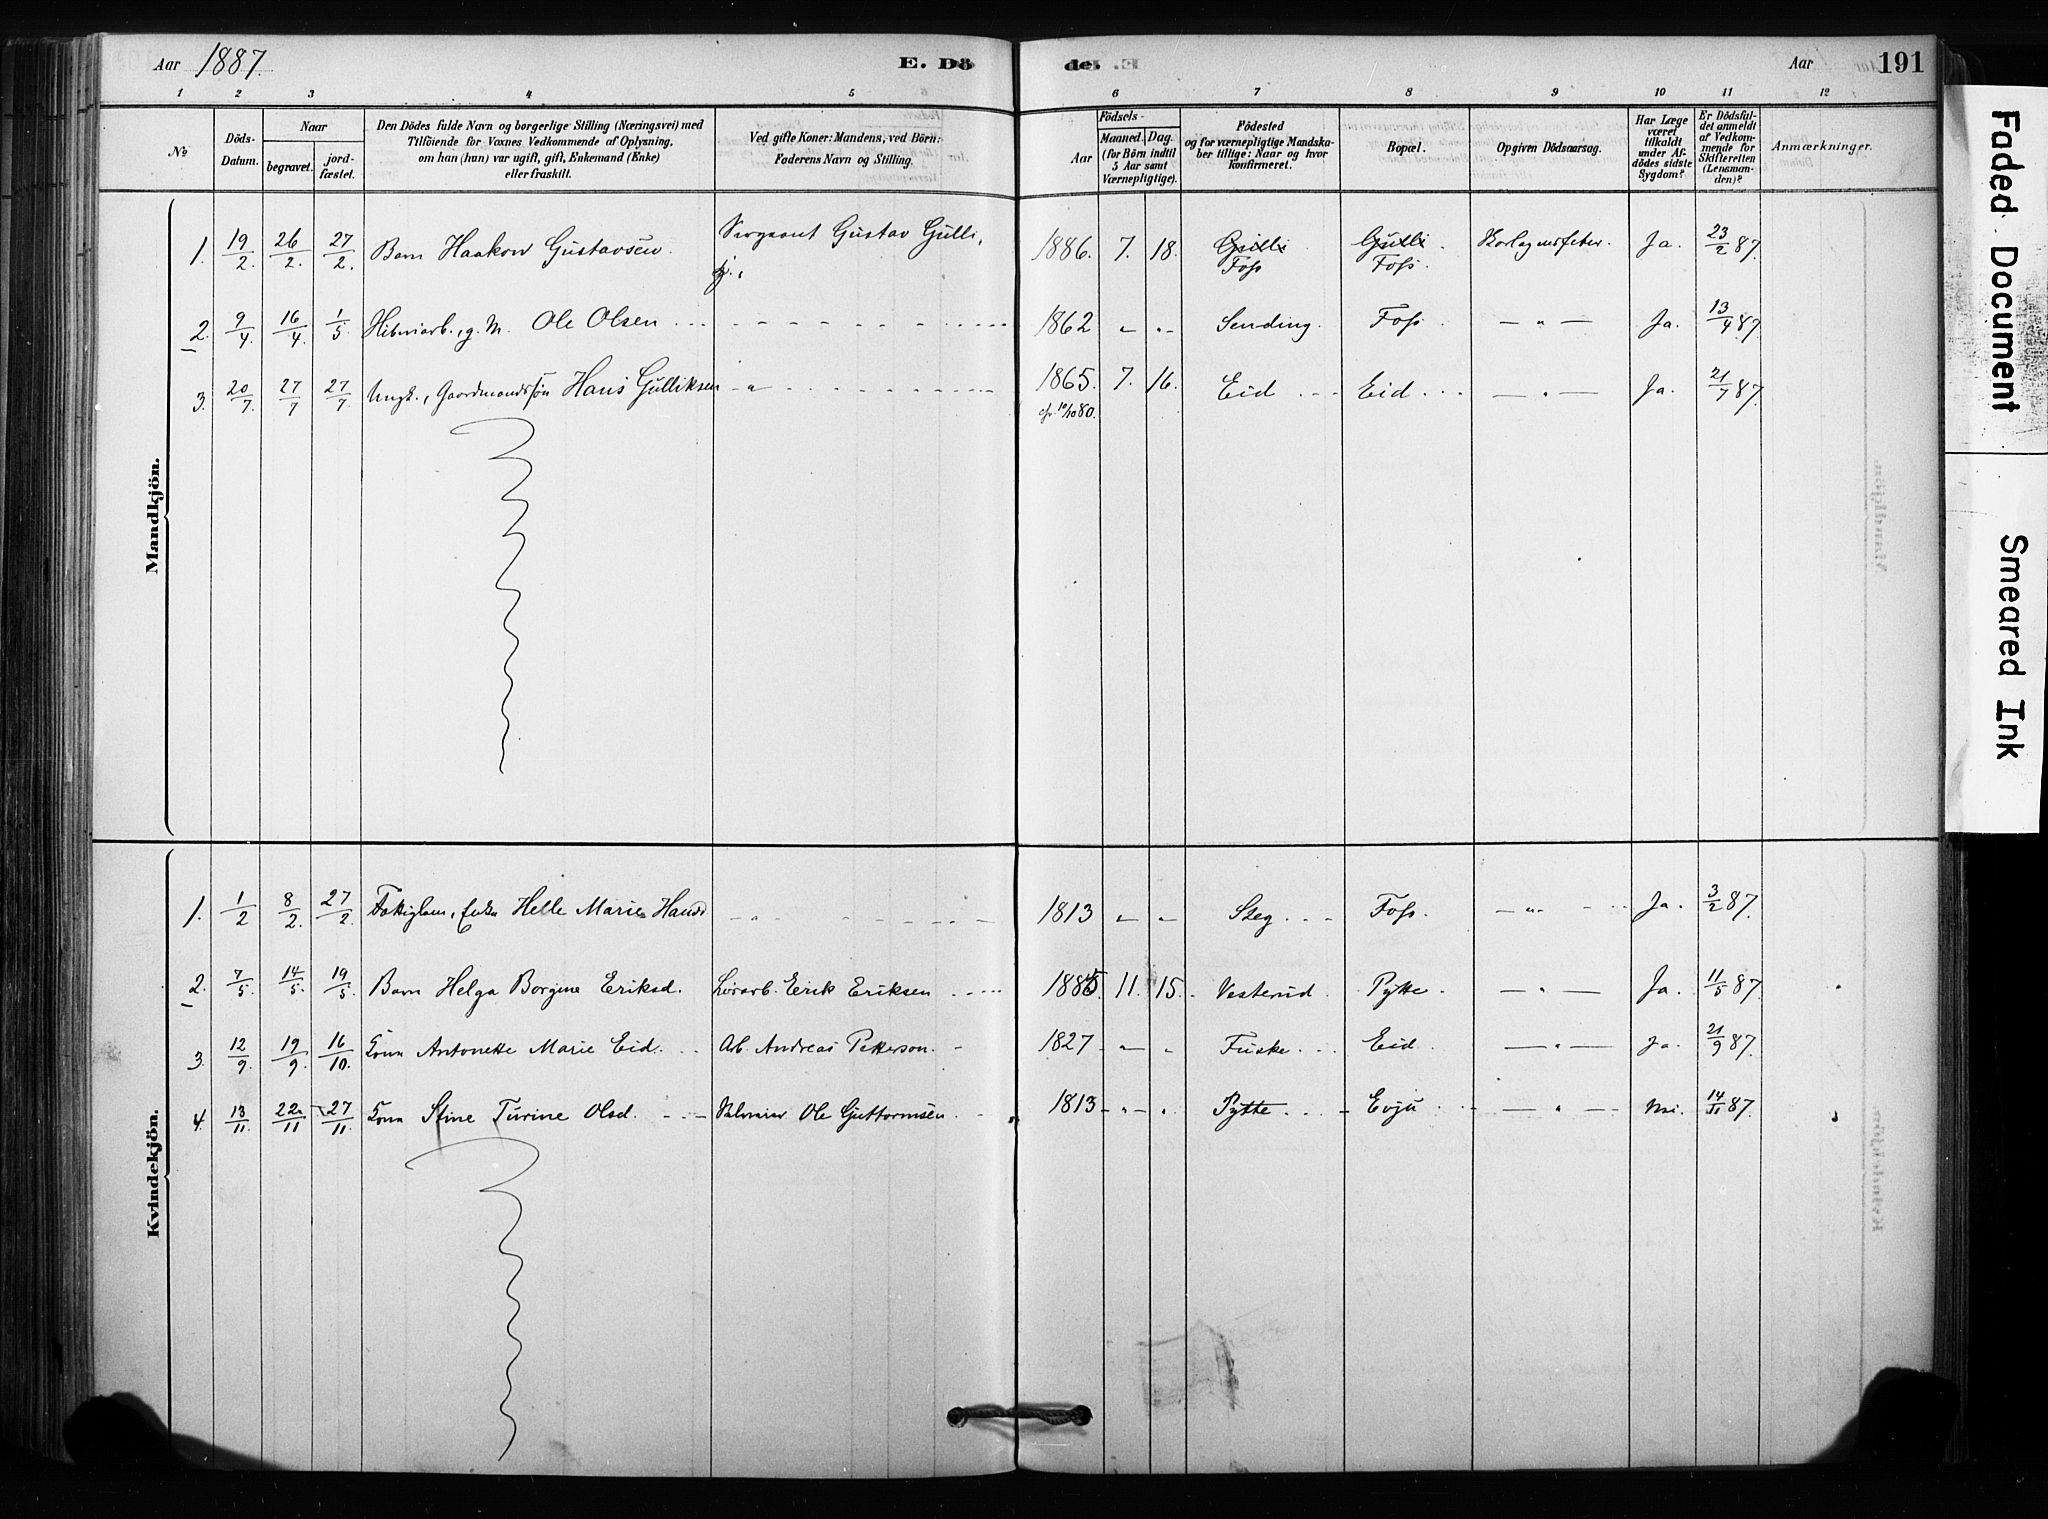 Aar 1887. E. Dö de. Aar 191
1 2 3 4 5 6 7 8 9 10 11 12
No
Döds-Datum.
Naar
begravet.
jord-fæstet.
Den Dödes fulde Navn og borgerlige Stilling (Næringsvei) med
Tilföiende for Voxnes Vedkommende af Oplysning,
om han (hun) var ugift, gift, Enkemand (Enke)
eller fraskilt.
Ved gifte Koner: Mandens, ved Börn:
Faderens Navn og Stilling.
Födsels-
Aar
Maaned. Dag.
(for Börn indtil
5 Aar samt
Værnepligtige).
Födested
og for værnepligtige Mandska-
ber tillige: Naar og hvor
Konfirmeret.
Bopæl.
Opgiven Dödsaarsag.
Har Læge
været
tilkaldt
under Af-
dödes sidste
Sygdom?
Er Dödsfal-
det anmeldt
af Vedkom-
mende for
Skifteretten
(Lensman-
den)?
Anmærkninger.
Mandkjön.
1. 19/2 26/2. 27/2. Barn Haakon Gustavsen. Sergeant Gustav Gulli, 1886. 7. 18. Gulli Foss Gulli. Foss. Ja. 23/2 87.
2. 9/4 16/4. 1/5 g. M. Ole Olsen 1862 " " Sending. Foss. — " — Ja. 13/4 87.
3. 20/7. 27/7 27/7 Ungk., Gaardmandssön Hans Gulliksen — " 1865. 7. 16. Eid Eid — " — Ja. 21/7 87.
10/10 80.
Kvindekjön.
1. 1/2 8/2. 27/2. Enke Helle Marie Hansd — " 1813 " " Steg Foss. — " — Ja. 3/2 87.
2. 7/5. 14/5. 19/5. Barn Helga Borgine Eriksd. Erik Eriksen 1885. 11. 15. Vesterud. Pytte. — " — Ja. 11/5 87.
3. 12/9. 19/9. 16/10. Kona Antonette Marie Eid. Arb. Andreas Petterson. 1827 " " Fuske Eid. — " — Ja. 21/9 87.
4. 13/11 22/11 27/11 Kona Stine Turine Olsd. Ole Guttormsen. 1813 " " Pytte Evju — " — Nei. 14/11 87.
Faded Document
Smeared Ink